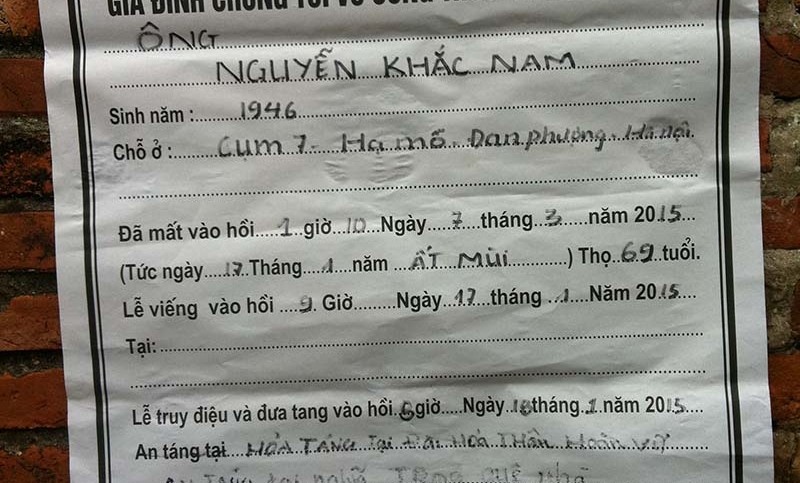 GIA ĐÌNH CHÚNG TÔI VÔ CÙNG
ÔNG
NGUYỄN KHẮC NAM
Sinh năm : 1946
Chỗ ở : Cụm 7 - Hạ mỗ - Đan phượng - Hà nội.
Đã mất vào hồi 1 giờ 10 Ngày 7 tháng 3 năm 2015
(Tức ngày 17 Tháng 1 năm ẤT MÙI ) Thọ 69 tuổi.
Lễ viếng vào hồi 9 Giờ Ngày 17 tháng 1 Năm 2015
Tại:
Lễ truy điệu và đưa tang vào hồi 6 giờ Ngày 18 tháng 1 năm 2015
An táng tại HỎA TÁNG Tại Đài HÓA THÂN Hoàn Vũ
AN TÁNG tại nghĩa TRANG QUÊ NHÀ